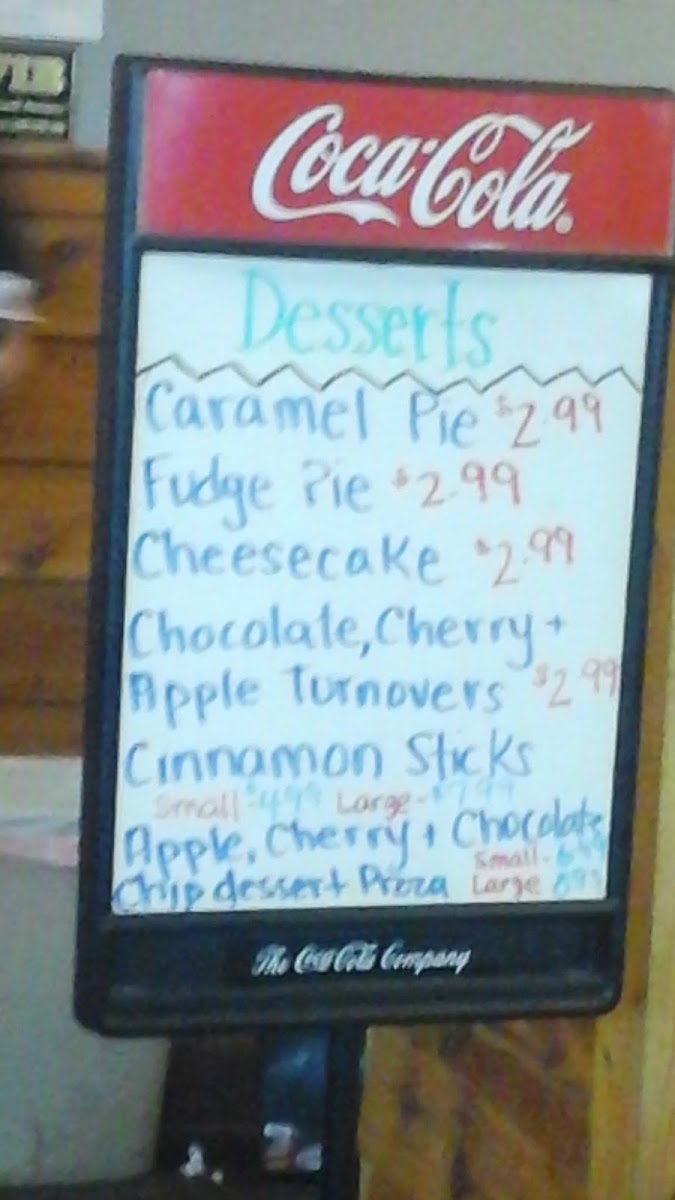 Coca-Cola
Desserts
Caramel Pie $2.99
Fudge Pie $2.99
Cheesecake $2.99
Chocolate, Cherry +
Apple Turnovers $2.99
Cinnamon Sticks
Small-$4.99 Large-$7.99
Apple, Cherry + Chocolate
Small-
Chip dessert Pizza Large
The Coca-Cola Company